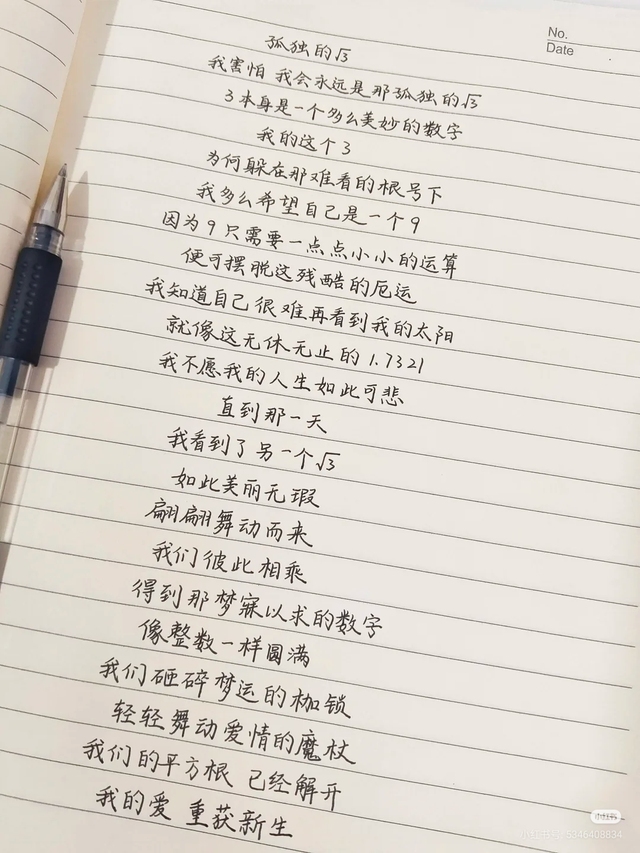 No.
Date
孤独的√3
我害怕 我会永远是那孤独的√3
3本身是一个多么美妙的数字
我的这个3
为何躲在那难看的根号下
我多么希望自己是一个9
因为9只需要一点点小小的运算
便可摆脱这残酷的厄运
我知道自己很难再看到我的太阳
就像这无休无止的1.7321
我不愿我的人生如此可悲
直到那一天
我看到了另一个√3
如此美丽无瑕
翩翩舞动而来
我们彼此相乘
得到那梦寐以求的数字
像整数一样圆满
我们砸碎梦运的枷锁
轻轻舞动爱情的魔杖
我们的平方根 已经解开
我的爱 重获新生
小红书